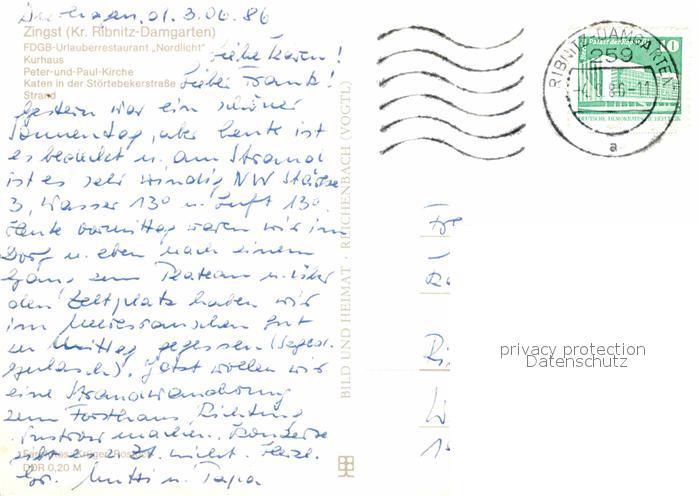 Dierhagen, d. 3.06.86
Zingst (Kr. Ribnitz-Damgarten)
FDGB-Urlauberrestaurant „Nordlicht"
Kurhaus
Peter-und-Paul-Kirche
Katen in der Störtebekerstraße
Strand
Liebe Karen!
Lieber Frank!
Gestern war ein schöner
Sonnentag, aber heute ist
es bedeckt u. am Strand
ist es sehr windig NW Stärke
3, Wasser 13° u. Luft 13°.
Heute vormittag waren wir im
Dorf u. eben nach einem
Gang zum Plateau u. über
den Zeltplatz haben wir
im Meeresrauschen gut
zu Mittag gegessen (Seges.
gulasch). Jetzt wollen wir
eine Strandwanderung
zum Forsthaus Richtung
Wustrow machen. Konzerte
gibt es z. Zt. nicht. Herzl.
Gr. Mutti u. Papa
DDR 0,20 M
BILD UND HEIMAT · REICHENBACH (VOGTL)
RIBNITZ-DAMGARTEN
259
-4.6.86-11
a
Palast der Republik
10
DEUTSCHE DEMOKRATISCHE REPUBLIK
privacy protection
Datenschutz